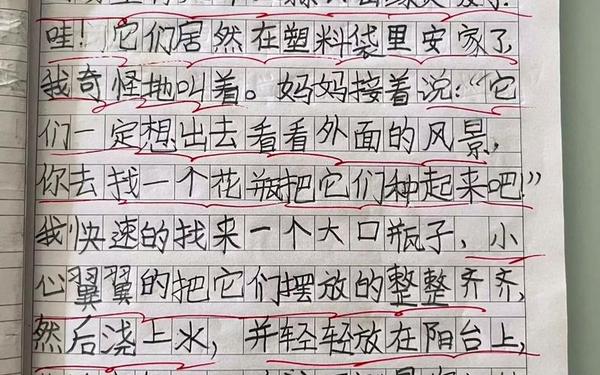 哇！它们居然在塑料袋里安家了，
我奇怪地叫着。妈妈接着说：“它
们一定想出去看看外面的风景，
你去找一个花瓶把它们种起来吧！”
我快速的找来一个大口瓶子，小
心翼翼的把它们摆放的整整齐齐，
然后浇上水，并轻轻放在阳台上，